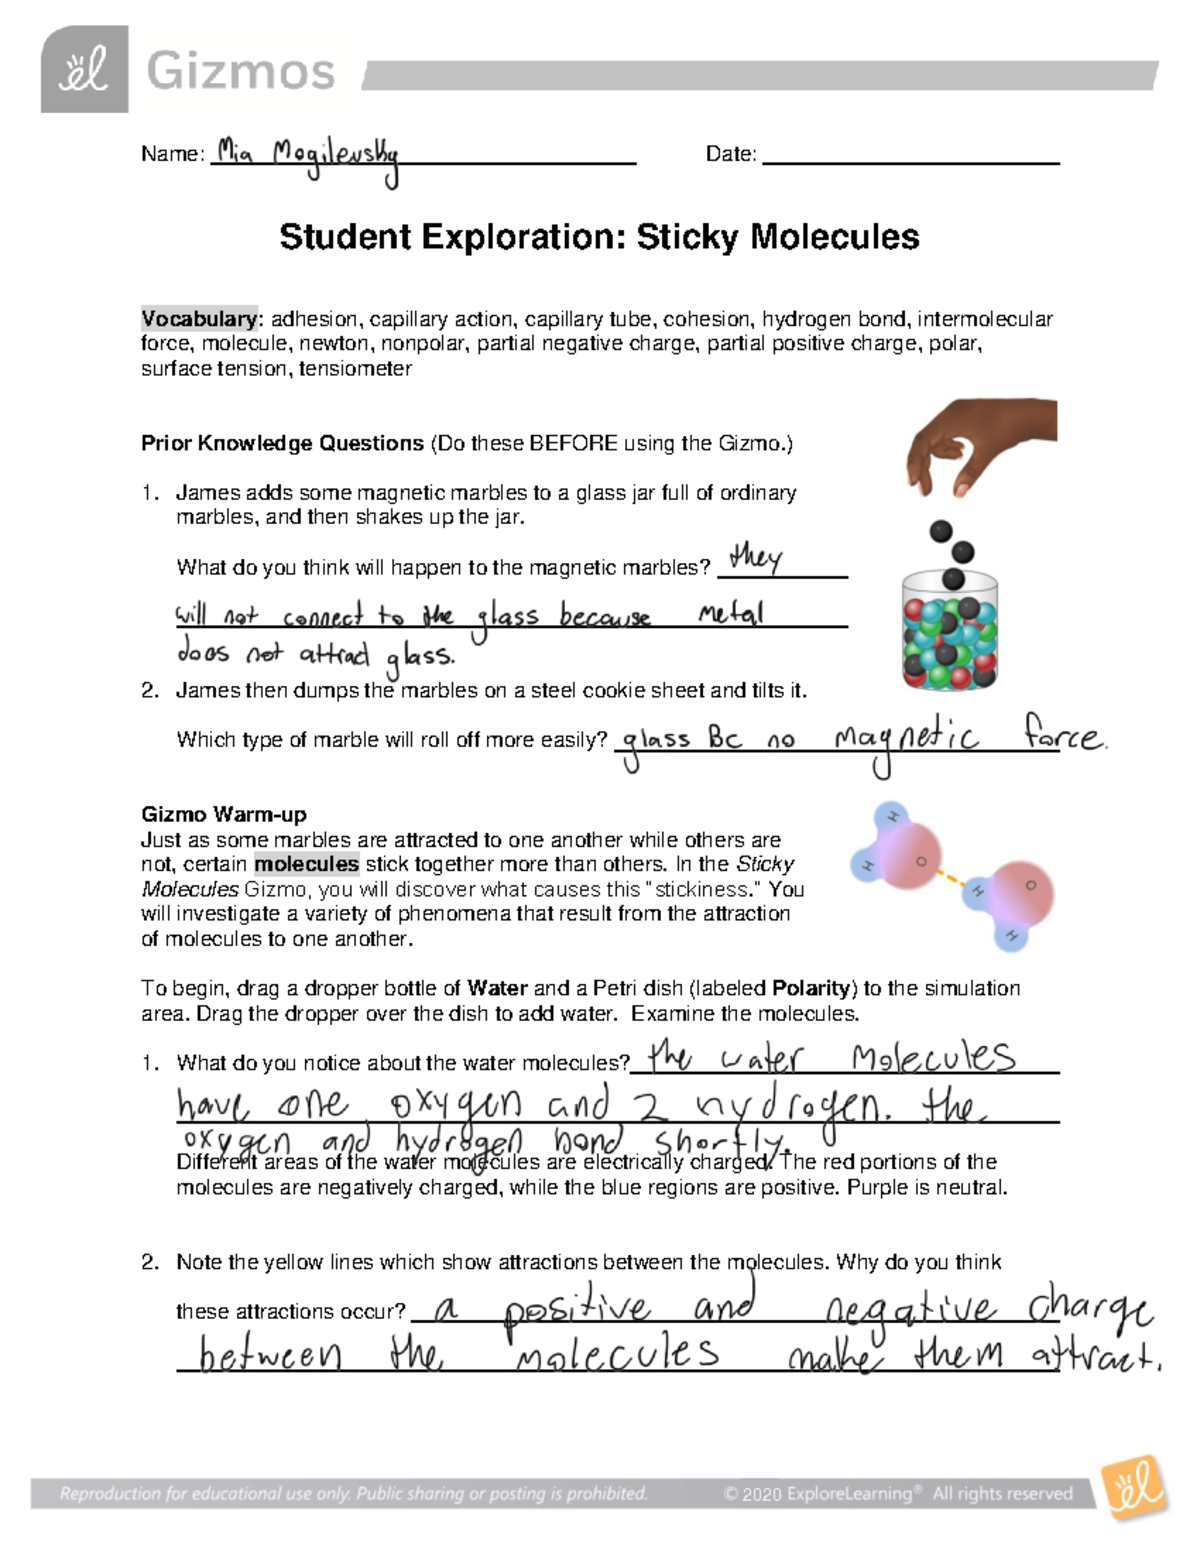 el Gizmos
Name: Mia Mogilevsky Date:
Student Exploration: Sticky Molecules
Vocabulary: adhesion, capillary action, capillary tube, cohesion, hydrogen bond, intermolecular
force, molecule, newton, nonpolar, partial negative charge, partial positive charge, polar,
surface tension, tensiometer
Prior Knowledge Questions (Do these BEFORE using the Gizmo.)
1. James adds some magnetic marbles to a glass jar full of ordinary
marbles, and then shakes up the jar.
What do you think will happen to the magnetic marbles? they
will not connect to the glass because metal
does not attract glass.
2. James then dumps the marbles on a steel cookie sheet and tilts it.
Which type of marble will roll off more easily? glass Bc no magnetic force.
Gizmo Warm-up
Just as some marbles are attracted to one another while others are
not, certain molecules stick together more than others. In the Sticky
Molecules Gizmo, you will discover what causes this "stickiness." You
will investigate a variety of phenomena that result from the attraction
of molecules to one another.
H
H
O
H
O
H
To begin, drag a dropper bottle of Water and a Petri dish (labeled Polarity) to the simulation
area. Drag the dropper over the dish to add water. Examine the molecules.
1. What do you notice about the water molecules? the water molecules
have one oxygen and 2 hydrogen. the
oxygen and hydrogen bond shortly.
Different areas of the water molecules are electrically charged. The red portions of the
molecules are negatively charged, while the blue regions are positive. Purple is neutral.
2. Note the yellow lines which show attractions between the molecules. Why do you think
these attractions occur? a positive and negative charge
between the molecules make them attract.
Reproduction for educational use only. Public sharing or posting is prohibited. © 2020 ExploreLearning® All rights reserved
el